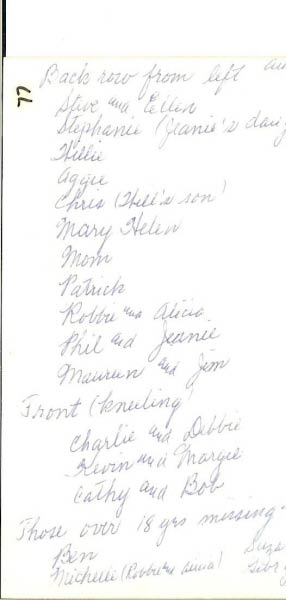 Back row from left
77
Steve and Eileen
Stephanie (Jeanie's
Hillie
Aggie
Chris (Hill's son)
Mary Helen
Mom
Patrick
Robbie and Alicia
Phil and Jeanie
Maureen and Jim
Front (kneeling)
Charlie and Debbie
Kevin and Margie
Cathy and Bob
Those over 18 yrs missing
Ben
Michelle (Robbie